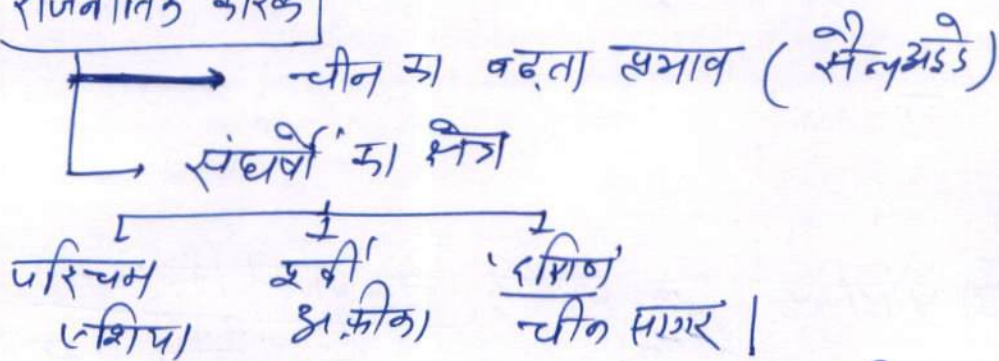 राजनीतिक कारक
चीन का बढ़ता प्रभाव (सैन्य अड्डे)
संघर्षों का क्षेत्र
पश्चिम एशिया
पूर्वी अफ्रीका
दक्षिण चीन सागर |